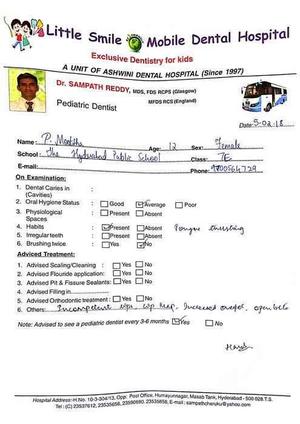 Little Smile Mobile Dental Hospital
Exclusive Dentistry for kids
A UNIT OF ASHWINI DENTAL HOSPITAL (Since 1997)
Dr. SAMPATH REDDY, MDS, FDS RCPS (Glasgow)
MFDS RCS (England)
Pediatric Dentist
Date: 5-02-18
Name: P. Age: 12 Sex: Female
School: The Hyderabad Public School Class: 7E
E-mail: Phone:
On Examination:
1. Dental Caries in (Cavities) :
2. Oral Hygiene Status : Good Average Poor
3. Physiological Spaces : Present Absent
4. Habits : Present Absent Tongue thrusting
5. Irregular teeth : Present Absent
6. Brushing twice : Yes No
Adviced Treatment:
1. Advised Scaling/Cleaning : Yes No
2. Advised Flouride application: Yes No
3. Advised Pit & Fissure Sealants: Yes No
4. Advised Filing in
5. Advised Orthodontic treatment : Yes No
6. Others: Incompetent lips, lip trap, Increased overjet, open bite
Note: Advised to see a pediatric dentist every 3-6 months Yes No
Hospital Address: H.No. 10-3-304/13, Opp: Post Office, Humayunnagar, Masab Tank, Hyderabad - 500 028. T.S.